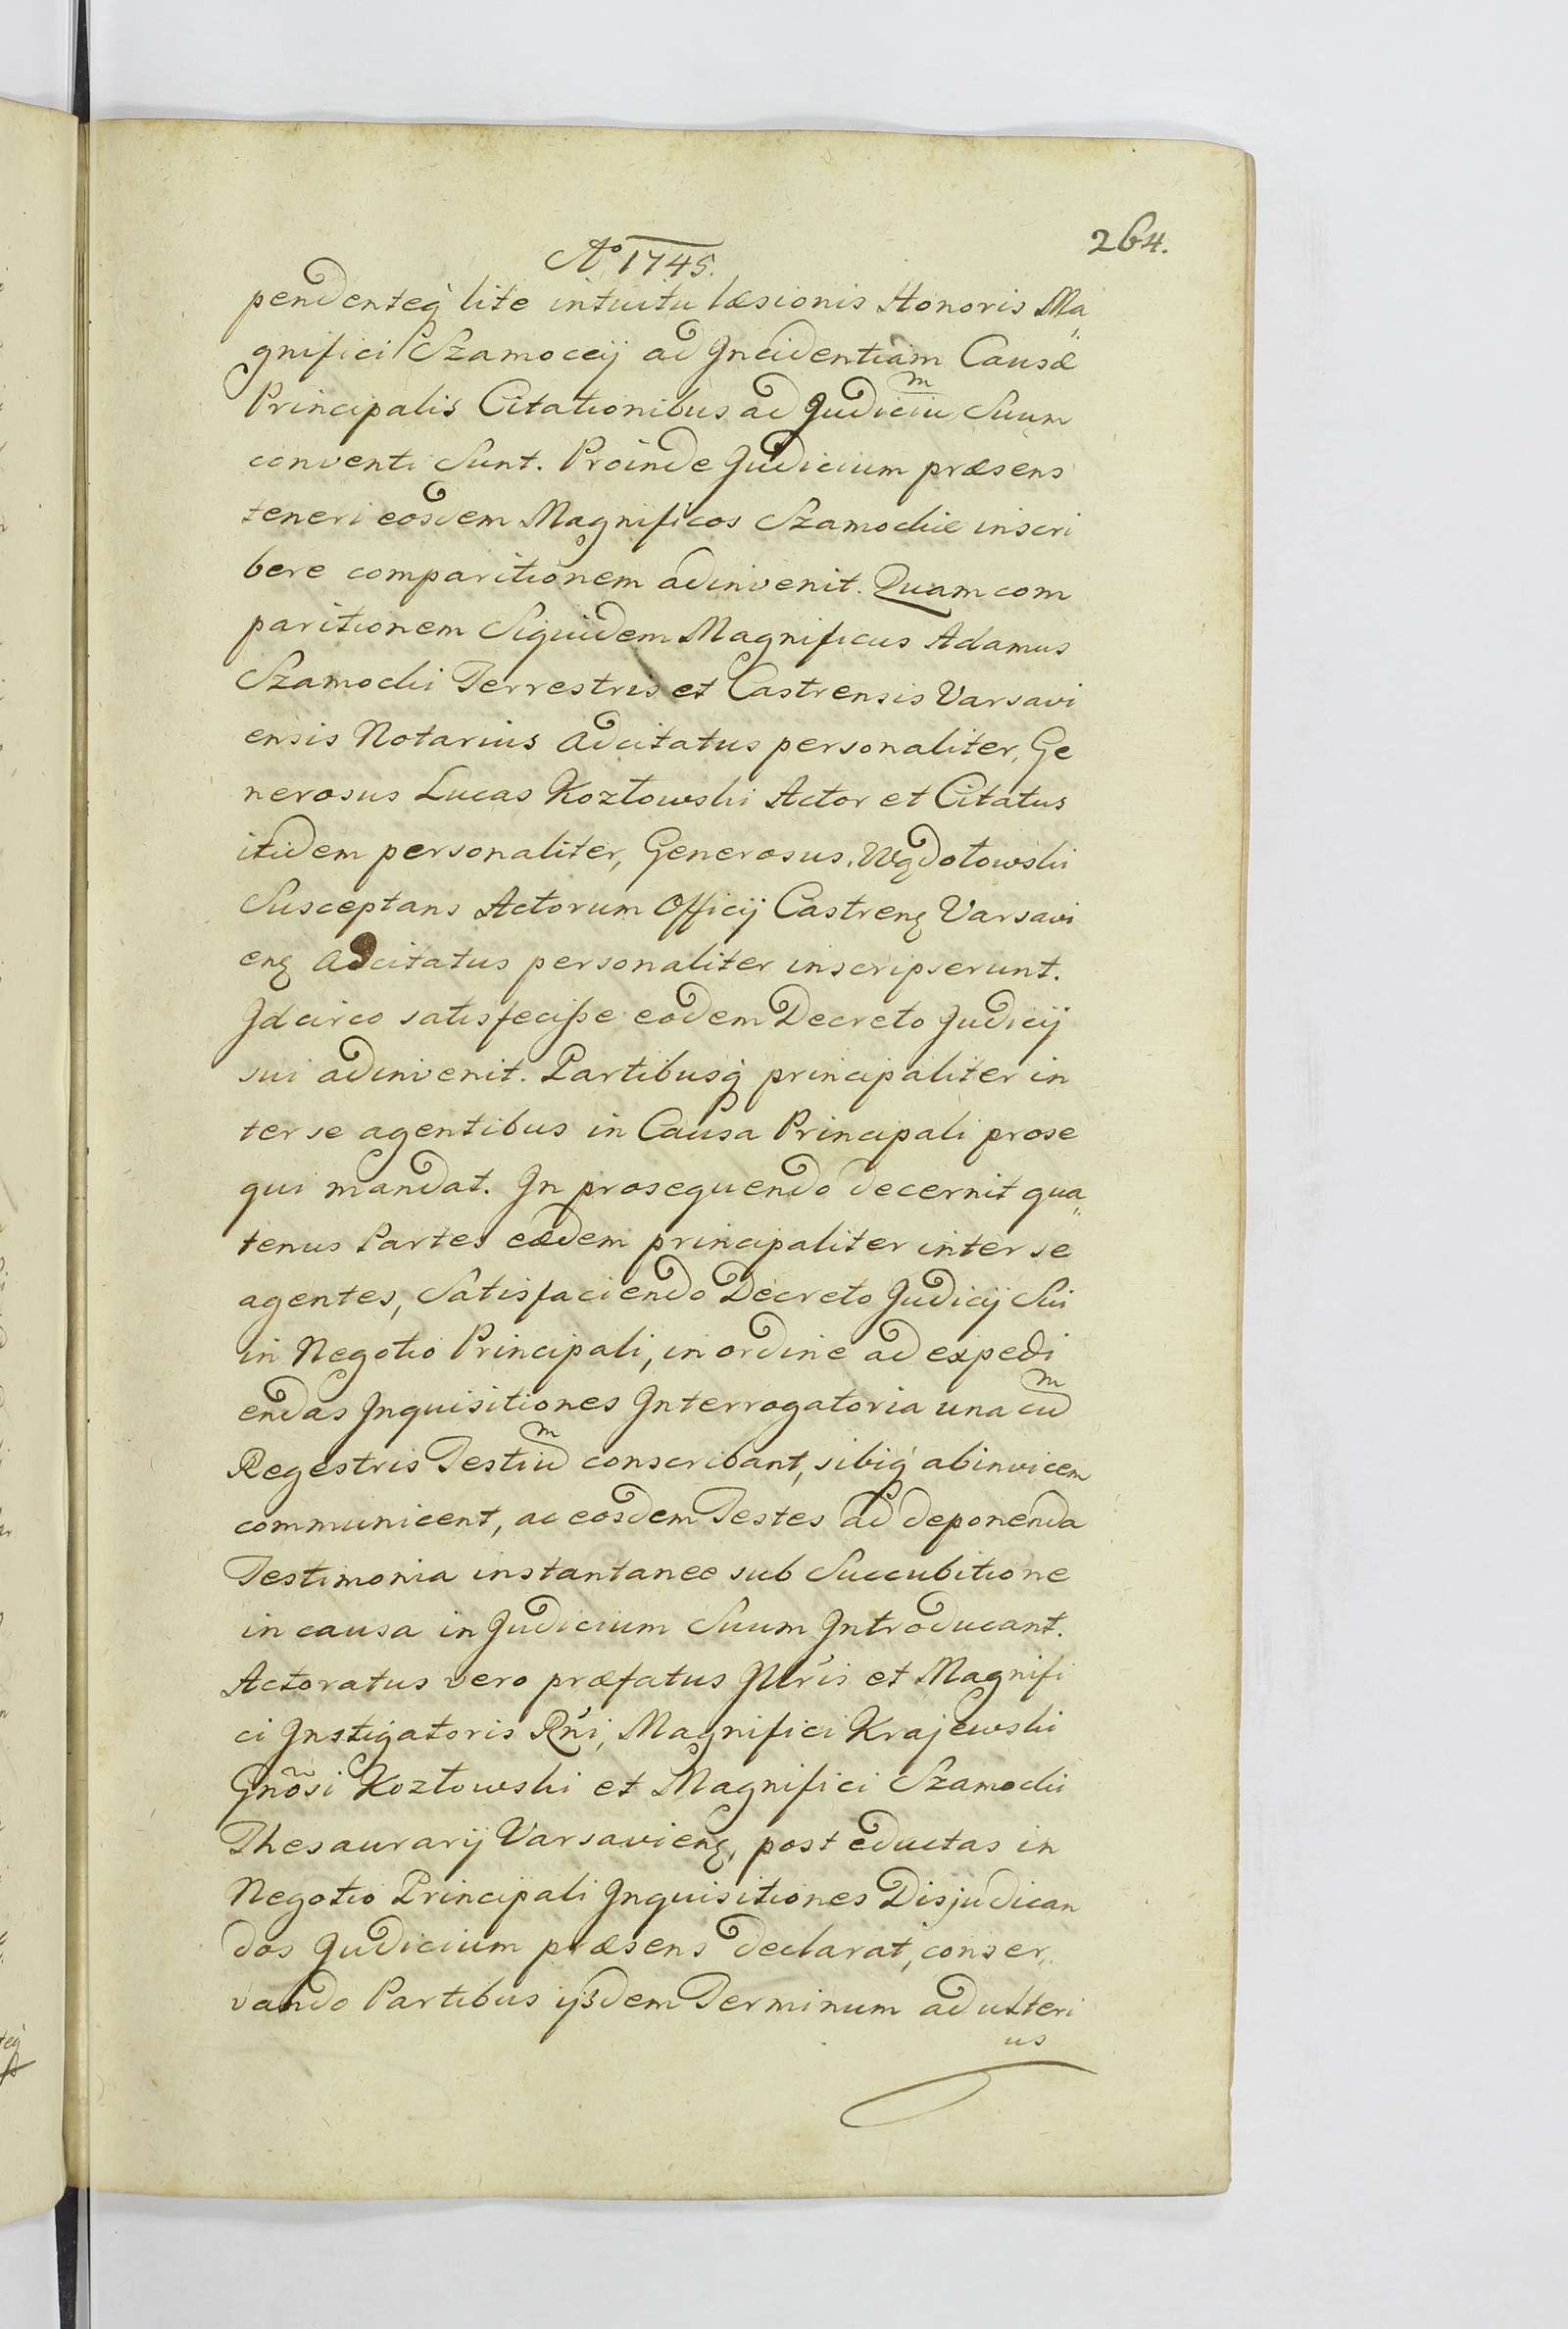 264.
Aº 1745.
pendenteq lite intuitu læsionis Honoris Ma„
gnifici Szamoccij ad Incidentiam Causæ
Principalis Citationibus ad Judiciuᵐ Suum
conventi Sunt. Proinde Judicium præsens
teneri eosdem Magnificos Szamockie inscri
bere comparitionem adinvenit. Quam com
paritionem Siquidem Magnificus Adamus
Szamocki Terrestris et Castrensis Varsavi
ensis Notarius Adcitatus personaliter, Ge
nerosus Lucas Kozłowski Actor et Citatus
itidem personaliter, Generosus Wądołowski
Susceptans Actorum Officij Castrenę Varsavi
enę Adcitatus personaliter inscripserunt.
Idcirco satisfeciſse eodem Decreto Judicij
sui adinvenit. Partibusq principaliter in
ter se agentibus in Causa Principali prose
qui mandat. In prosequendo decernit qua„
tenus Partes eædem principaliter inter se
agentes, Satisfaciendo Decreto Judicij Sui
in Negotio Principali, in ordine ad expedi
endas Inquisitiones Interrogatoria una cuᵐ
Regestris Testiuᵐ conscribant, sibiq abinvicem
communicent, ac eosdem Testes ad deponenda
Testimonia instantanee sub Succubitione
in causa in Judicium Suum Introducant.
Actoratus vero præfatus Illr̃is et Magnifi
ci Instigatoris Rñi, Magnifici Krajewski
Gnõsi Kozłowski et Magnifici Szamocki
Thesaurarij Varsavienę, post eductas in
Negotio Principali Inquisitiones Disjudican
dos Judicium præsens declarat, conser„
vando Partibus ijsdem Terminum ad ulteri
us